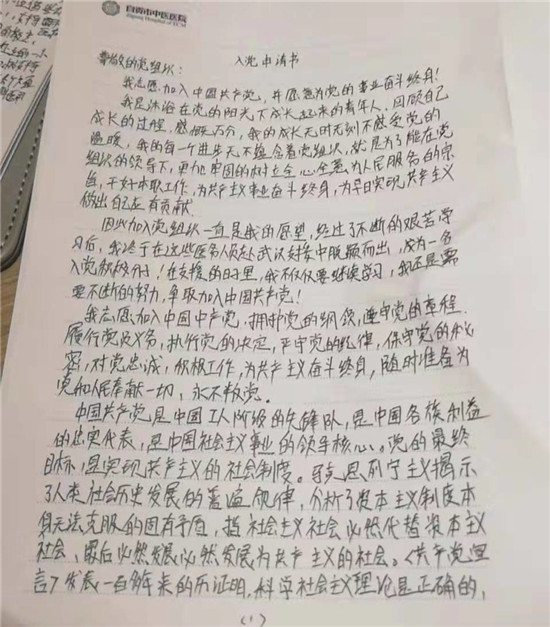 自贡市中医医院
Zigong Hospital of TCM
入党申请书
尊敬的党组织:
我志愿加入中国共产党,并愿意为党的事业奋斗终身!
我是沐浴在党的阳光下成长起来的青年人,回顾自己
成长的过程,感慨万分,我的成长无时无刻不感受党的
温暖,我的每一个进步无不蕴含着党组织,就是为了能在党
组织的领导下,更加牢固的树立全心全意为人民服务的宗
旨,干好本职工作,为共产主义事业奋斗终身,为早日实现共产主义
做出自己应有贡献.
因此加入党组织一直是我的愿望,经过了不断的艰苦学
习后,我终于在这些医务人员赴武汉支援中脱颖而出,成为一名
入党积极分子!在支援的日子里,我不仅仅要继续学习,我还是需
要不断的努力,争取加入中国共产党!
我志愿加入中国中产党,拥护党的纲领,遵守党的章程.
履行党员义务,执行党的决定,严守党的纪律,保守党的秘
密,对党忠诚,积极工作,为共产主义奋斗终身,随时准备为
党和人民奉献一切,永不叛党。
中国共产党是中国工人阶级的先锋队,是中国各族利益
的忠实代表,是中国社会主义事业的领导核心。党的最终
目标,是实现共产主义的社会制度。马克思列宁主义揭示
了人类社会历史发展的普遍规律,分析了资本主义制度本
身无法克服的固有矛盾,指社会主义社会必然代替资本主义
社会、最后必然发展必然发展为共产主义的社会。《共产党宣
言》发表一百多年来的历证明,科学社会主义理论是正确的,
(1)